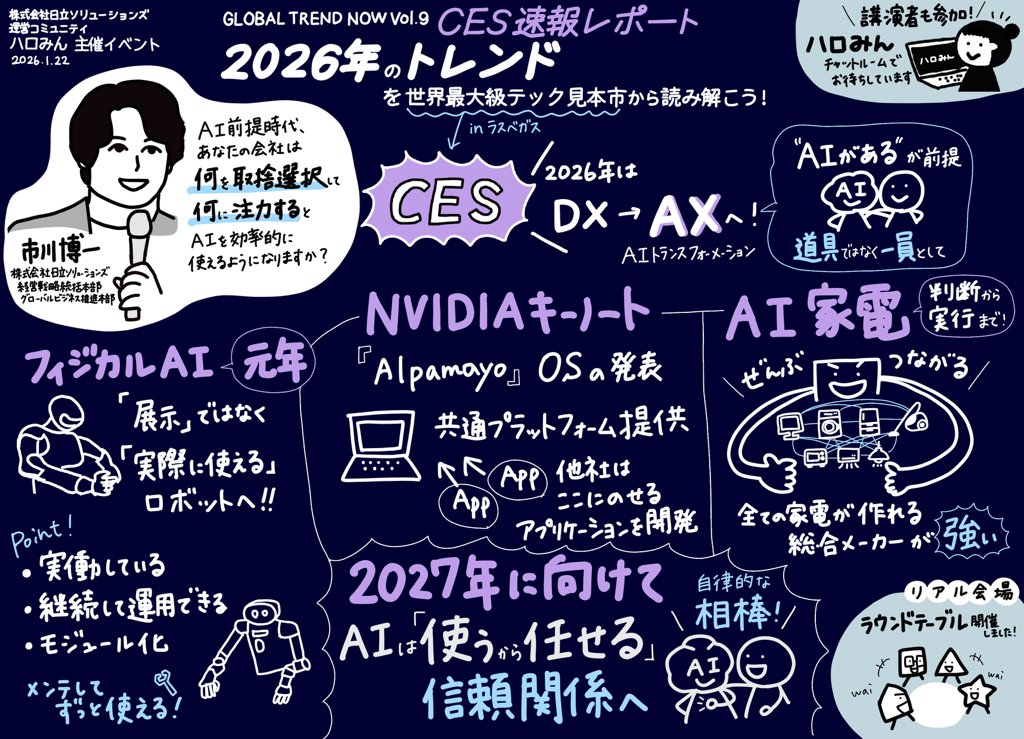 株式会社日立ソリューションズ
運営コミュニティ
ハロみん 主催イベント
2026.1.22
GLOBAL TREND NOW Vol.9
CES速報レポート
2026年のトレンド
を世界最大級テック見本市から読み解こう!
in ラスベガス
講演者も参加!
ハロみん
チャットルームで
お待ちしています
ハロみん
AI前提時代、
あなたの会社は
何を取捨選択して
何に注力すると
AIを効率的に
使えるようになりますか?
市川博一
株式会社日立ソリューションズ
経営戦略統括本部
グローバルビジネス推進本部
CES
2026年は
DX→AXへ!
AIトランスフォーメーション
"AIがある"が前提
AI
道具ではなく一員として
フィジカルAI 元年
「展示」ではなく
「実際に使える」
ロボットへ!!
Point!
・実働している
・継続して運用できる
・モジュール化
メンテして
ずっと使える!
NVIDIAキーノート
『Alpamayo』OSの発表
共通プラットフォーム提供
App
App
他社は
ここにのせる
アプリケーションを開発
AI家電
判断から
実行まで!
ぜんぶ
つながる
全ての家電が作れる
総合メーカーが
強い
2027年に向けて
AIは「使うから任せる」
信頼関係へ
自律的な
相棒!
AI
リアル会場
ラウンドテーブル開催
しました!
wai
wai